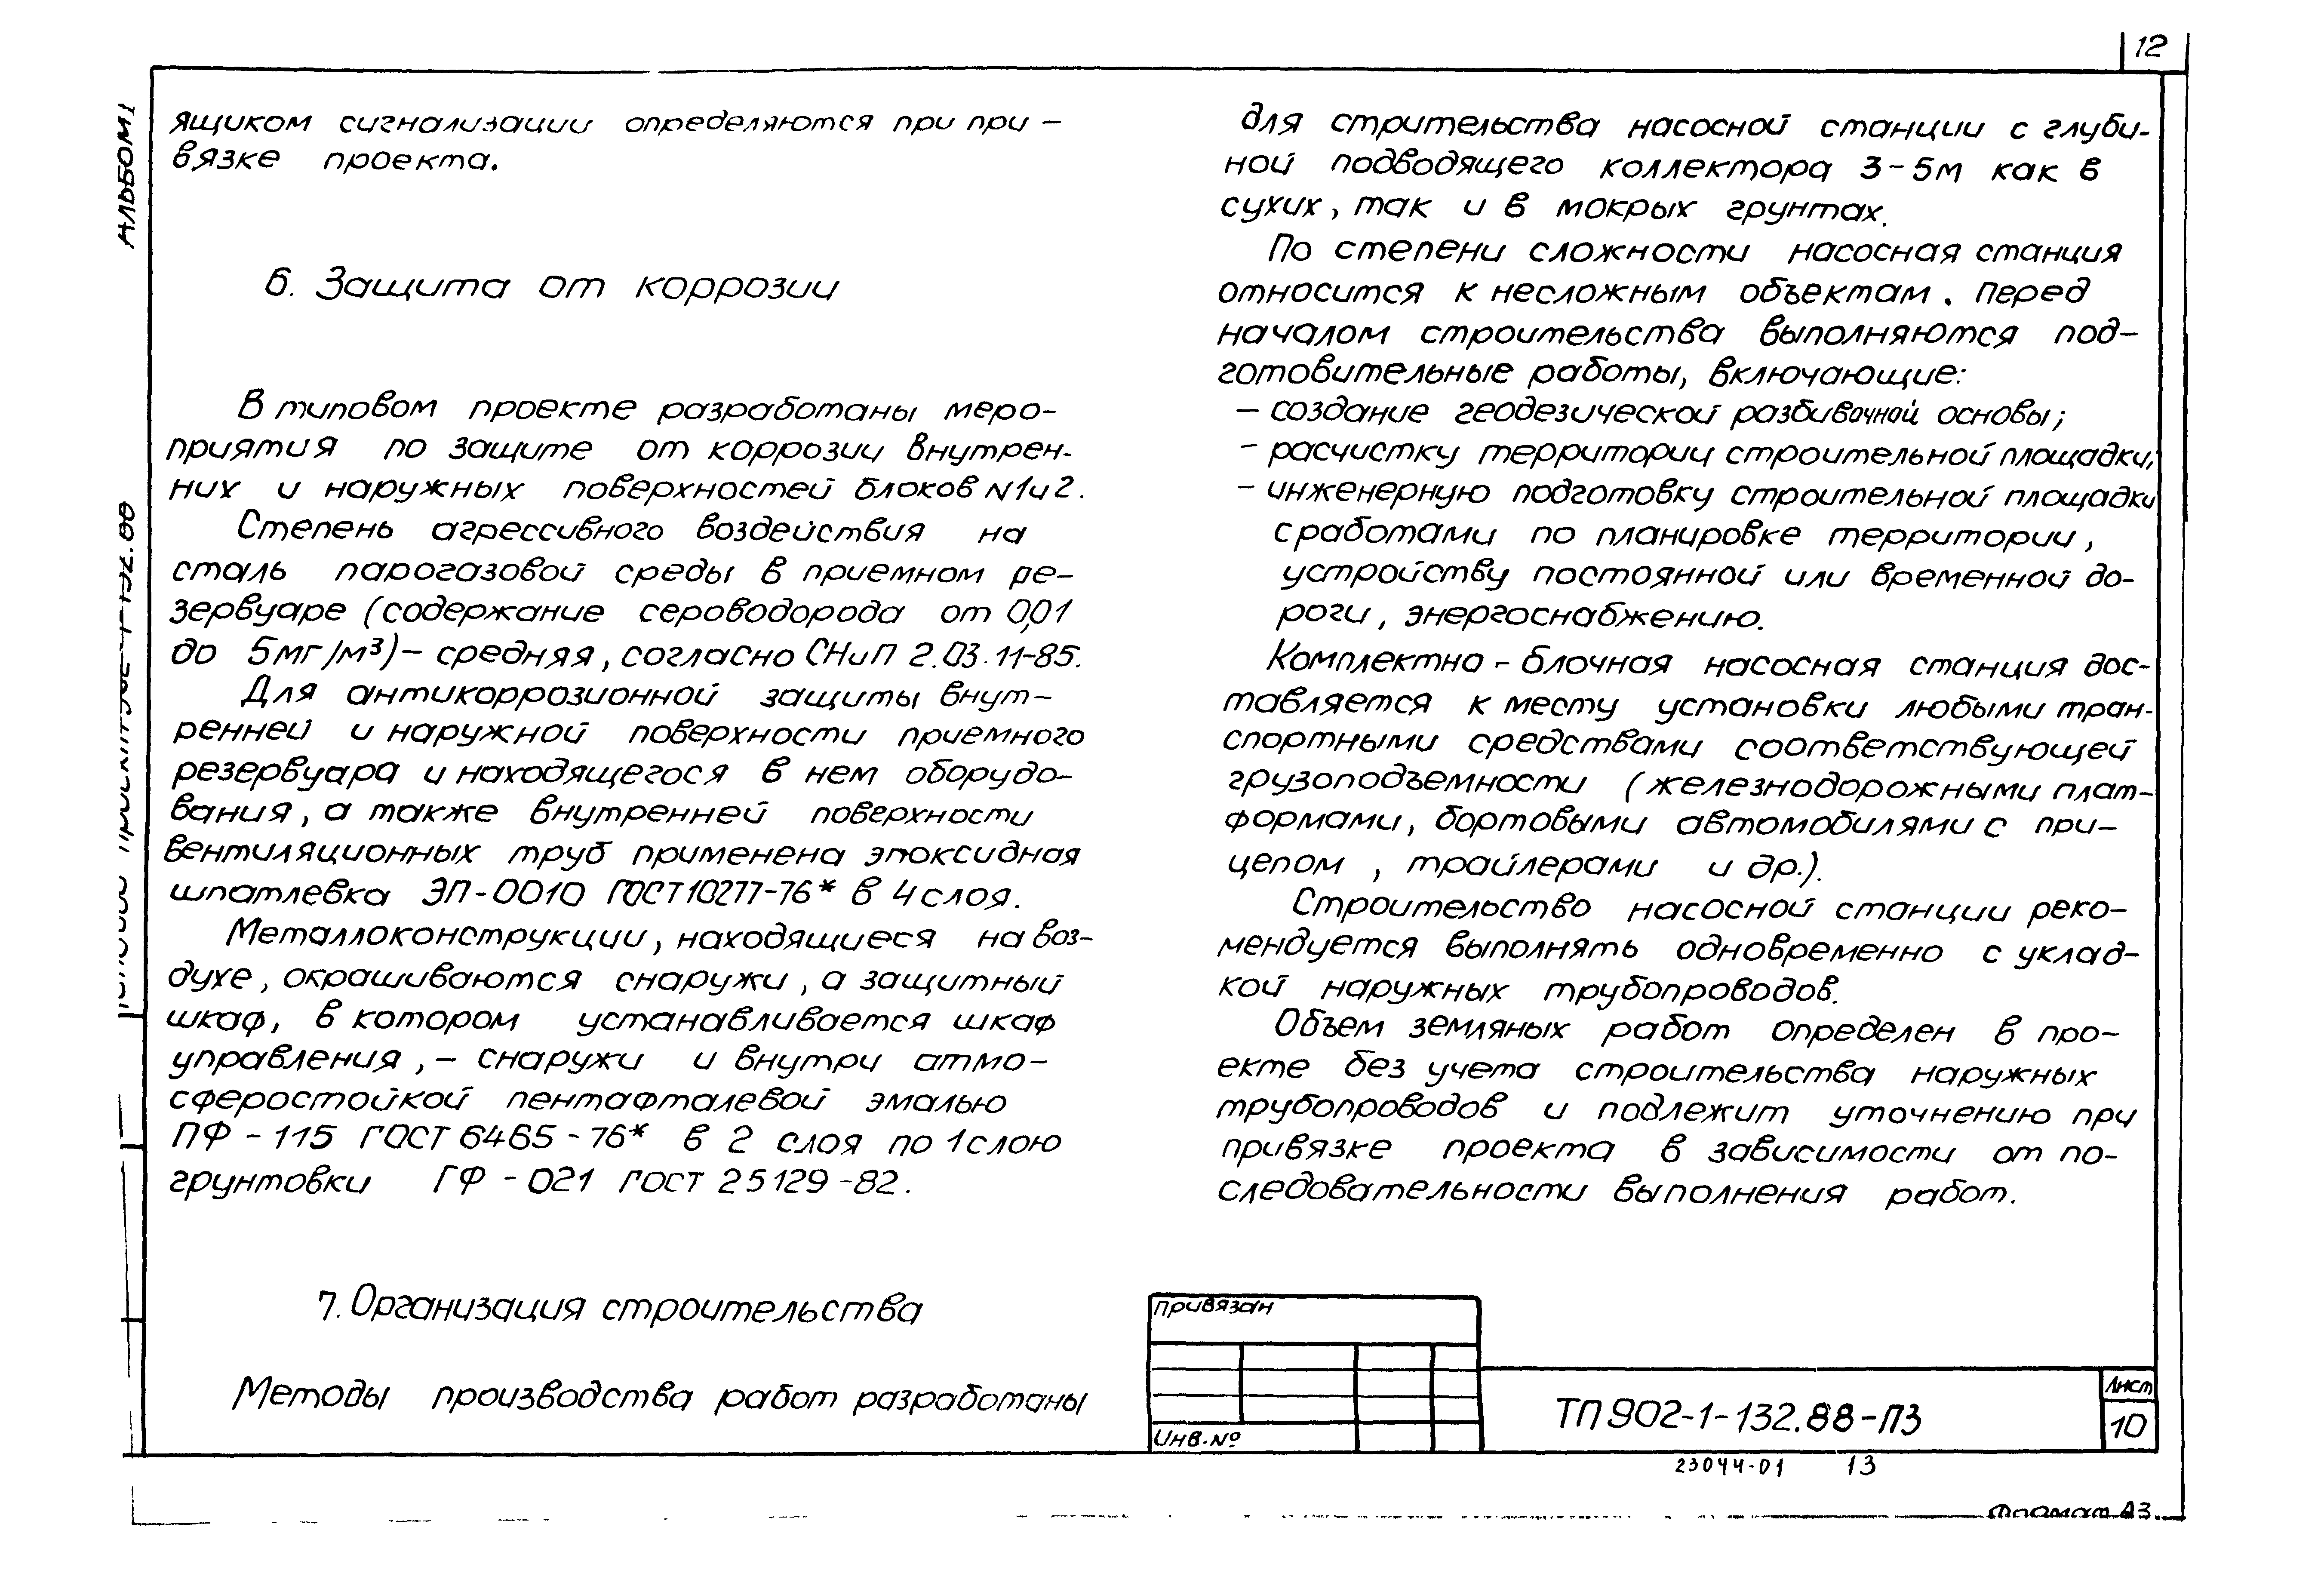 12
АЛЬБОМ I
ящиком сигнализации определяются при при-
вязке проекта.
6. Защита от коррозии
В типовом проекте разработаны меро-
приятия по защите от коррозии внутрен-
них и наружных поверхностей блоков N1и2.
Степень агрессивного воздействия на
сталь парогазовой среды в приемном ре-
зервуаре (содержание сероводорода от 0,01
до 5мг/м³)- средняя, согласно СНиП 2.03.11-85.
Для антикоррозионной защиты внут-
ренней и наружной поверхности приемного
резервуара и находящегося в нем оборудо-
вания, а также внутренней поверхности
вентиляционных труб применена эпоксидная
шпатлевка ЭП-0010 ГОСТ10277-76* в 4слоя.
Металлоконструкции, находящиеся на воз-
духе, окрашиваются снаружи, а защитный
шкаф, в котором устанавливается шкаф
управления, - снаружи и внутри атмо-
сферостойкой пентафталевой эмалью
ПФ-115 ГОСТ 6465-76* в 2 слоя по 1слою
грунтовки ГФ-021 ГОСТ 25129-82.
7. Организация строительства
Методы производства работ разработаны
для стрительства насосной станции с глуби-
ной подводящего коллектора 3-5м как в
сухих, так и в мокрых грунтах.
По степени сложности насосная станция
относится к несложным объектам. Перед
началом строительства выполняются под-
готовительные работы, включающие:
- создание геодезической разбивочной основы;
- расчистку территории строительной площадки;
- инженерную подготовку строительной площадки
с работами по планировке территории,
устройству постоянной или временной до-
роги, энергоснабжению.
Комплектно-блочная насосная станция дос-
тавляется к месту установки любыми тран-
спортными средствами соответствующей
грузоподъемности (железнодорожными плат-
формами, бортовыми автомобилями с при-
цепом, трайлерами и др.).
Строительство насосной станции реко-
мендуется выполнять одновременно с уклад-
кой наружных трубопроводов.
Объем земляных работ определен в про-
екте без учета строительства наружных
трубопроводов и подлежит уточнению при
привязке проекта в зависимости от по-
следовательности выполнения работ.
Привязан
Инв.№
ТП902-1-132.88-ПЗ
Лист
10
23044-01 13
Формат А3.